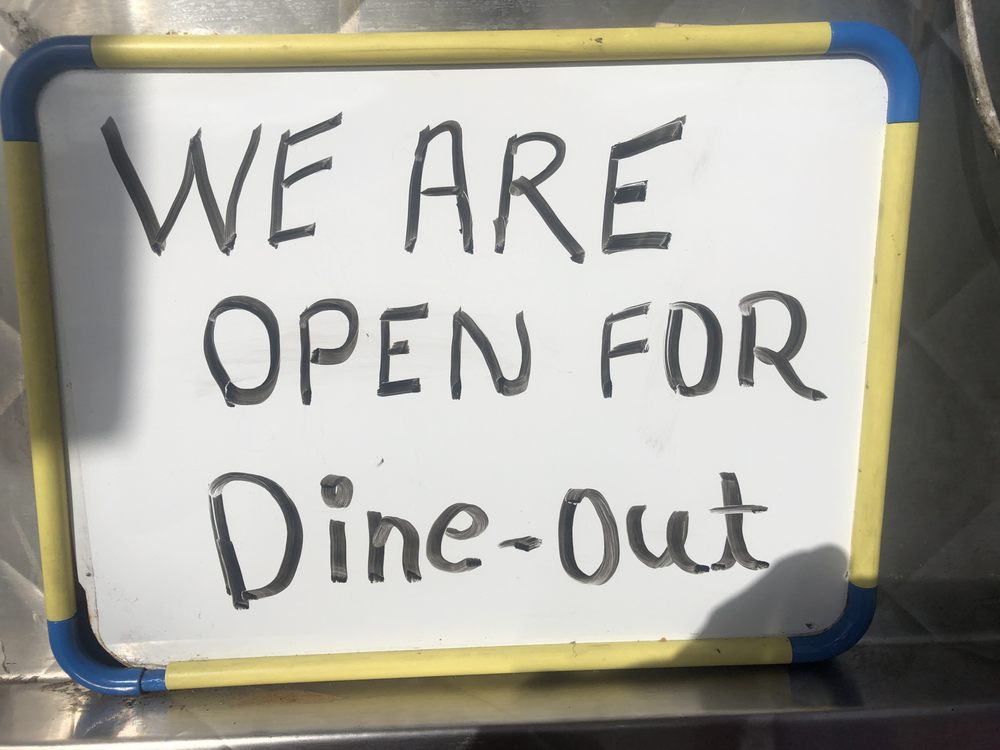 WE ARE
OPEN FOR
Dine-Out